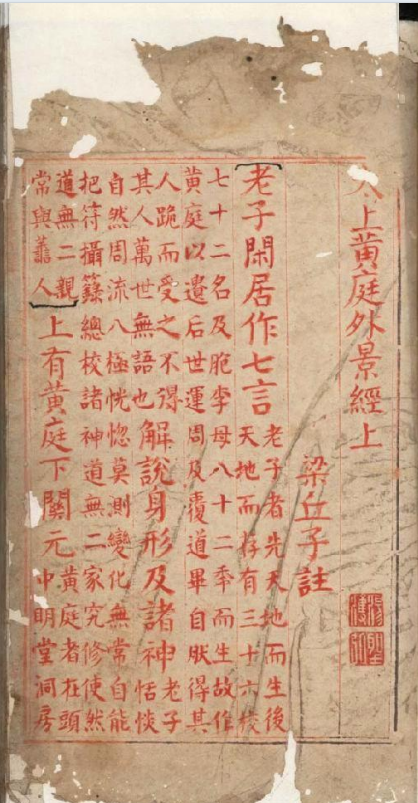 太上黄庭外景經上
梁丘子註
老子閑居作七言
老子者先天地而生後
天地而存有三十六
七十二名及胞李母八十二年而生故作
黄庭以遺后世運周及覆道畢自然得其
人跪而受之不得
其人萬世無語也
解說身形及諸神
老子
恬惔
自然周流八極恍惚莫測變化無常自能
把符攝籙總校諸神道無二家究修使然
道無二親
常與譱人
上有黄庭下關元
黄庭者在頭
中明堂洞房